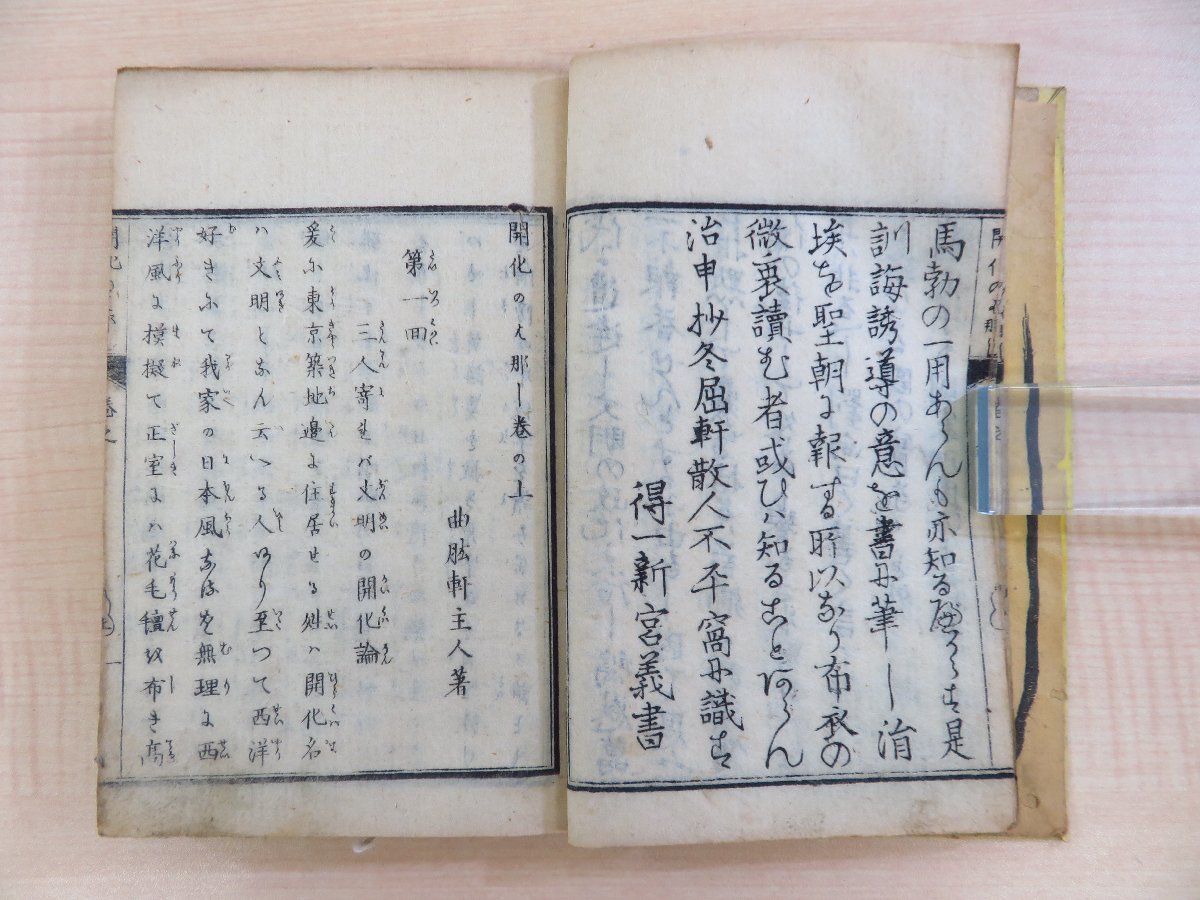 馬勃の一用あらんも亦知る可からす是
訓誨誘導の意を書に筆し涓
埃を聖朝に報する所以なり布衣の
微衷讀む者或ひハ知ることあらん
治申抄冬屈軒散人不平窩に識す
得一新宮義書
開化のは那し巻の上
曲肱軒主人著
第一回
三人寄れバ文明の開化論
爰に東京築地邊に住居せる
ハ文明となん云いる人あり至つて西洋
好きにて我家の日本風なるを無理に西
洋風に模擬て正室にハ花毛氈を布き高